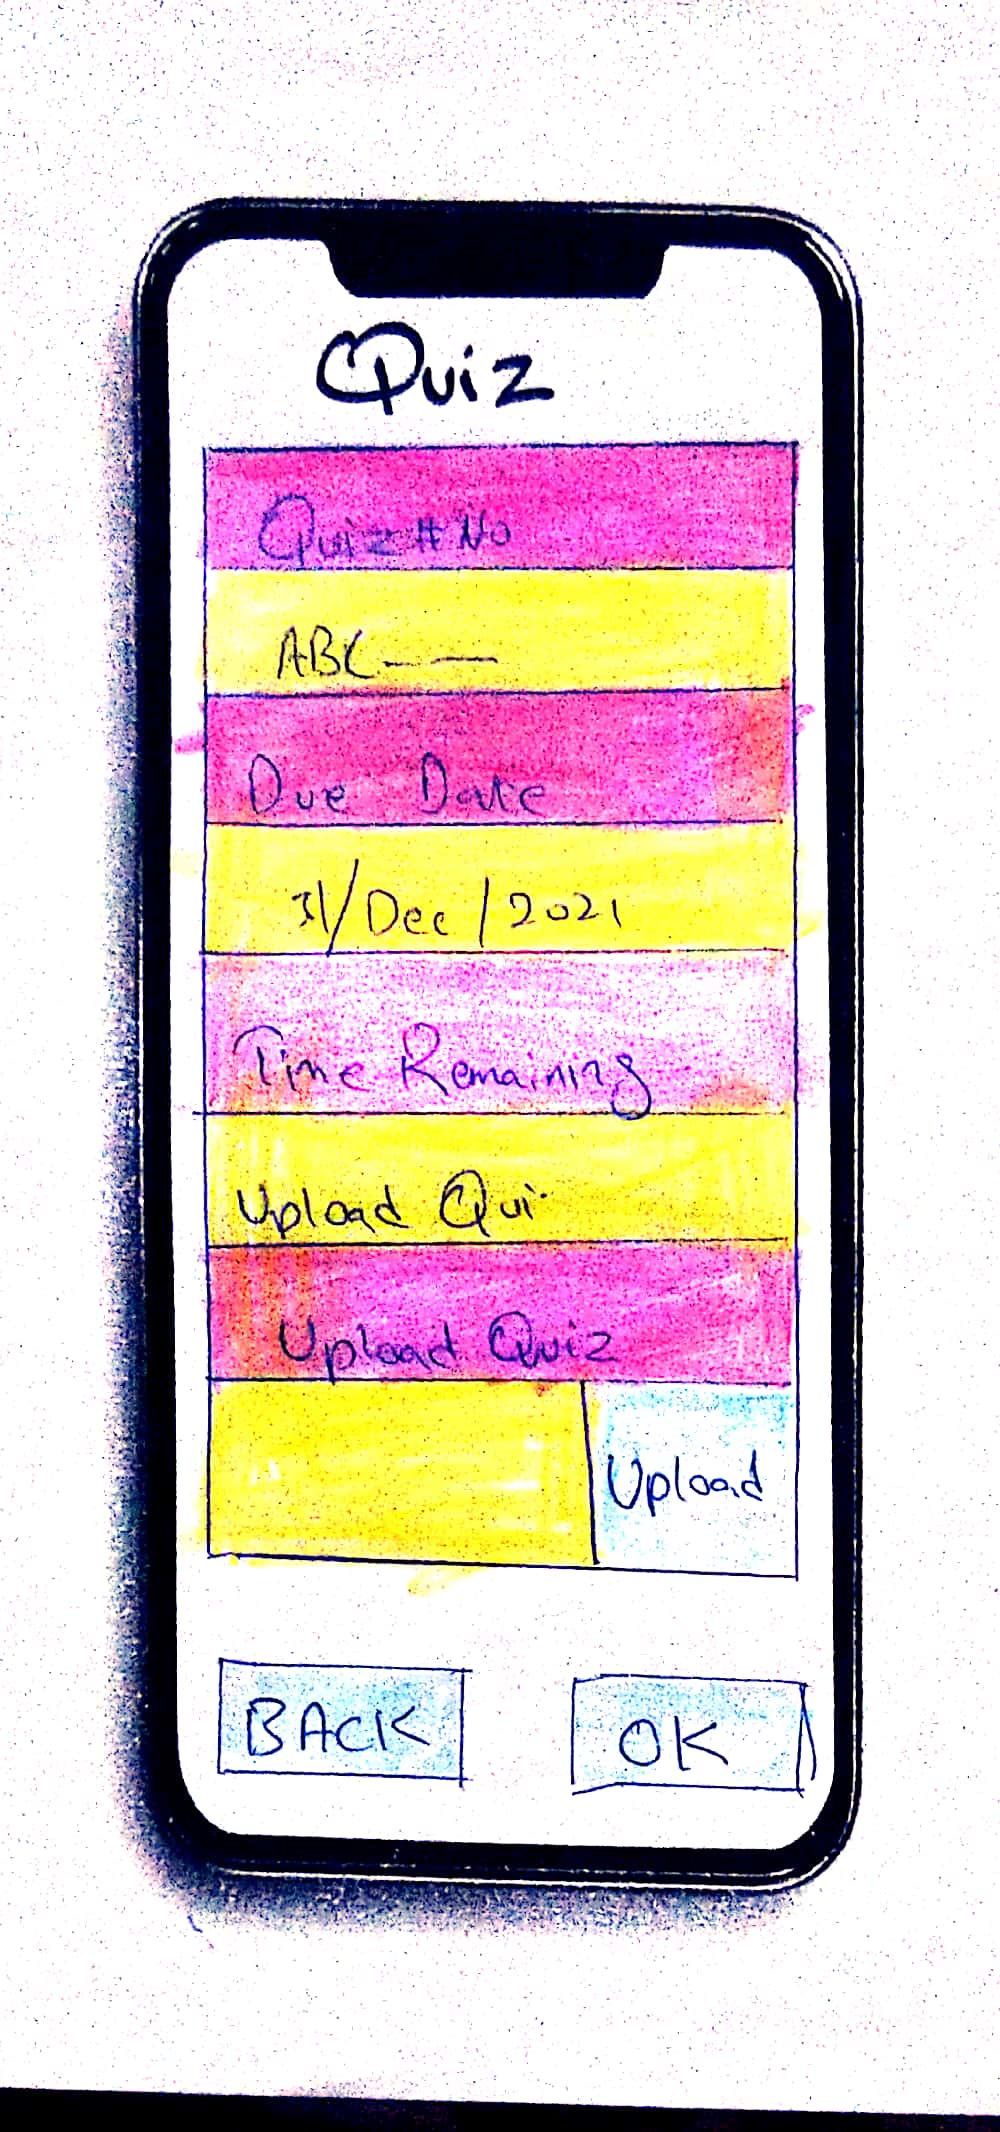 Quiz
Quiz # No
ABC——
Due Date
31/Dec/2021
Time Remaining
Upload Qui
Upload Quiz
Upload
BACK
OK